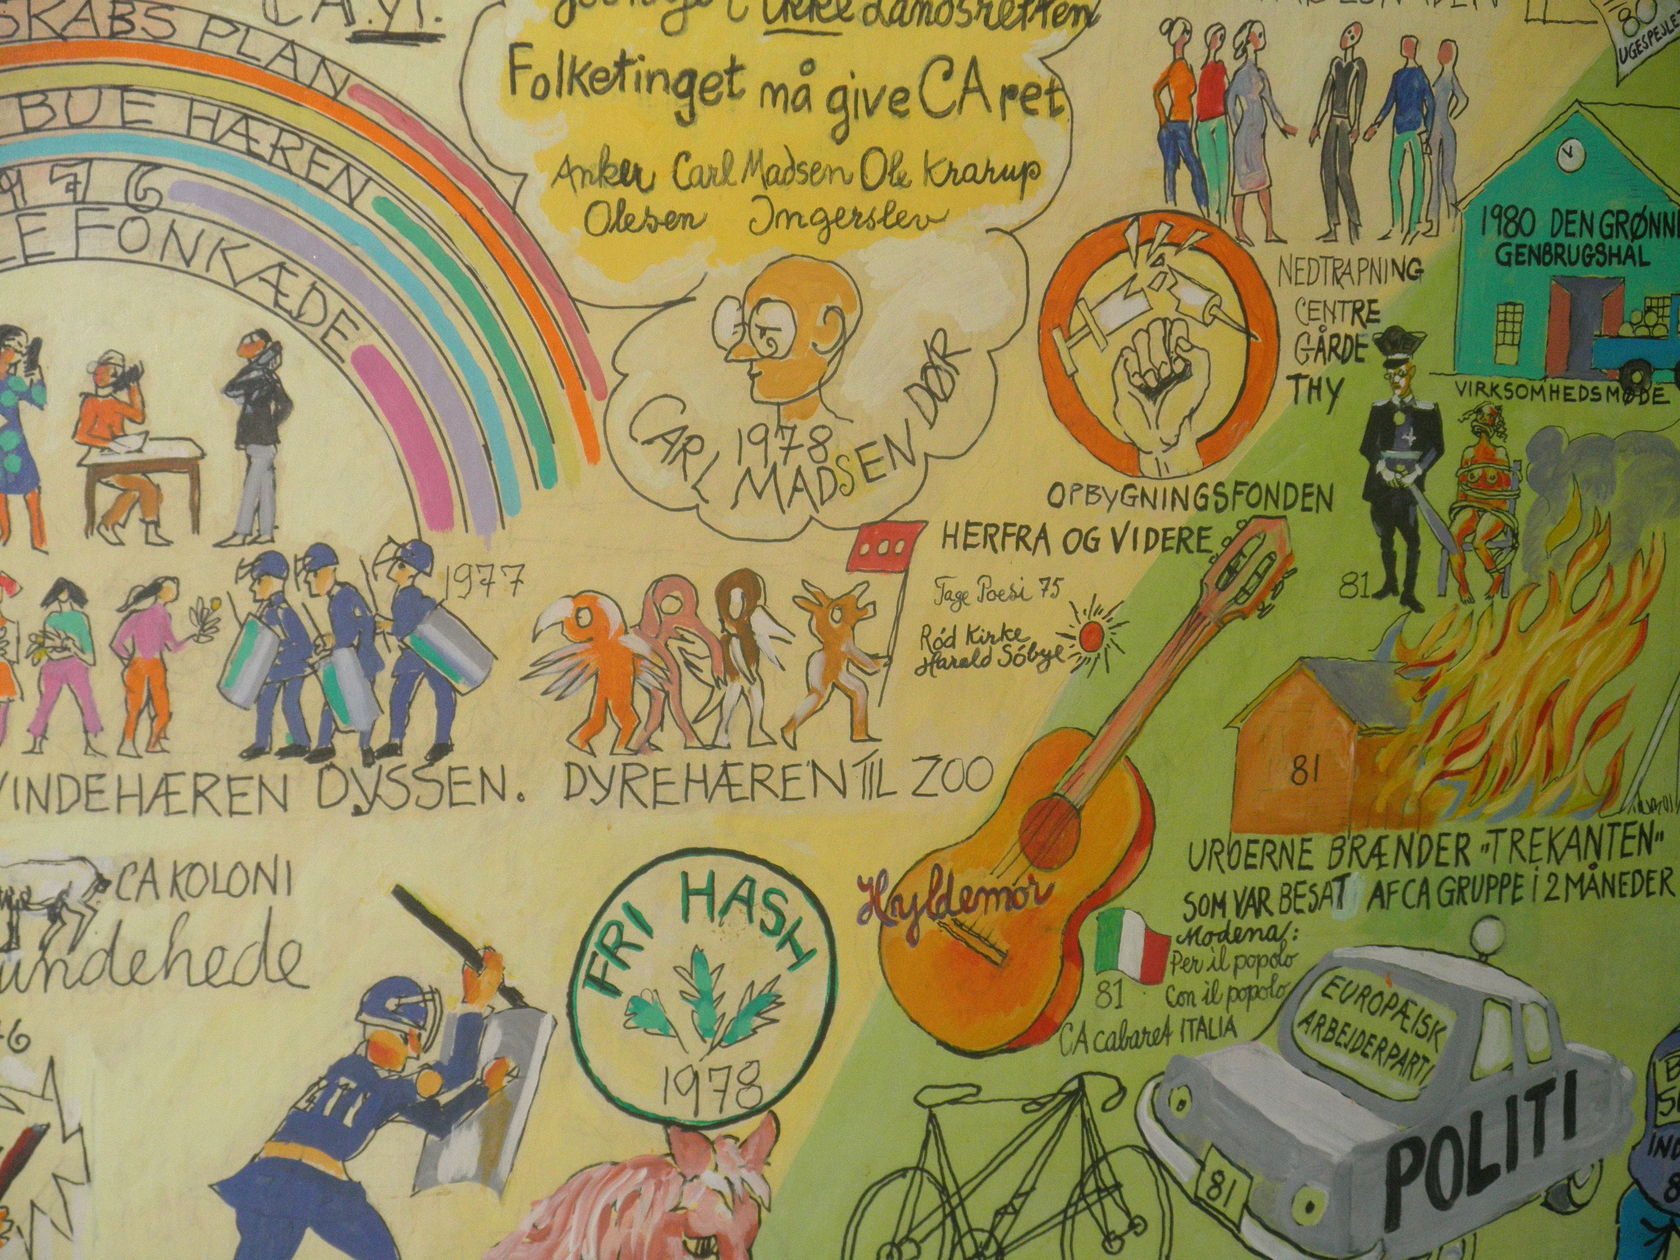 SKABS PLAN
BUE HÆREN
1976
LEFONKÆDE
ikke Landsretten
Folketinget må give CA ret
Anker Carl Madsen Ole Krarup
Olesen Ingerslev
1978
CARL MADSEN DØR
80
UGESPEJLE
NEDTRAPNING
CENTRE
GÅRDE
THY
OPBYGNINGSFONDEN
1980 DEN GRØNNE
GENBRUGSHAL
VIRKSOMHEDSMØDE
HERFRA OG VIDERE
Tage Poesi 75
Rød Kirke
Harald Søbye
1977
VINDEHÆREN DYSSEN.
DYREHÆREN TIL ZOO
81
81
UROERNE BRÆNDER "TREKANTEN"
SOM VAR BESAT AF CA GRUPPE I 2 MÅNEDER
CA KOLONI
undehede
FRI HASH
1978
Hyldemor
Modena:
Per il popolo
Con il popolo
81
CA cabaret ITALIA
EUROPÆISK
ARBEJDERPARTI
POLITI
81